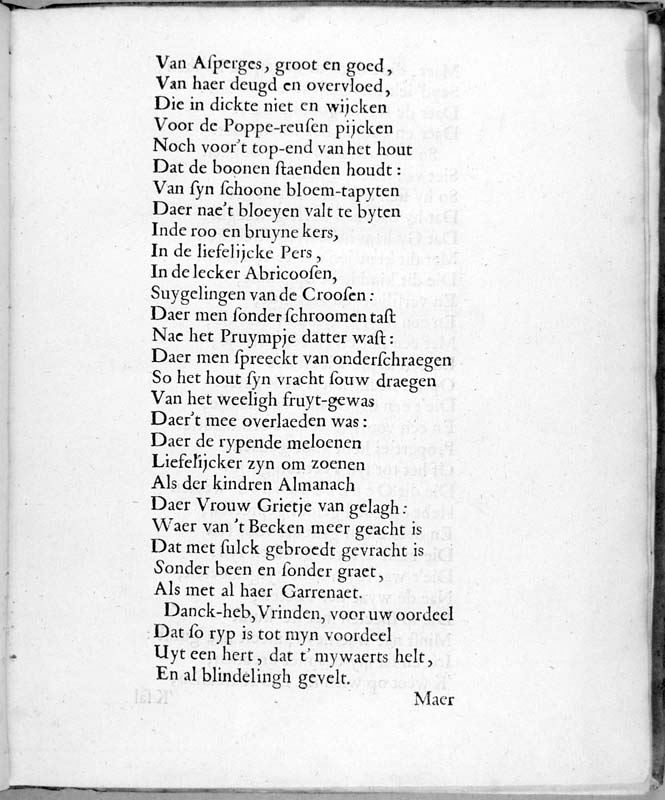 Van Aſperges, groot en goed,
Van haer deugd en overvloed,
Die in dickte niet en wijcken
Voor de Poppe-reuſen pijcken
Noch voor't top-end van het hout
Dat de boonen ſtaenden houdt:
Van ſyn ſchoone bloem-tapyten
Daer nae't bloeyen valt te byten
Inde roo en bruyne kers,
In de liefelijcke Pers,
In de lecker Abricooſen,
Suygelingen van de Crooſen:
Daer men ſonder ſchroomen taſt
Nae het Pruympje datter waſt:
Daer men ſpreeckt van onderſchraegen
So het hout ſyn vracht ſouw draegen
Van het weeligh fruyt-gewas
Daer't mee overlaeden was:
Daer de rypende meloenen
Liefelijcker zyn om zoenen
Als der kindren Almanach
Daer Vrouw Grietje van gelagh:
Waer van 't Becken meer geacht is
Dat met ſulck gebroedt gevracht is
Sonder been en ſonder graet,
Als met al haer Garrenaet.
Danck-heb, Vrinden, voor uw oordeel
Dat ſo ryp is tot myn voordeel
Uyt een hert, dat t' mywaerts helt,
En al blindelingh gevelt.
Maer